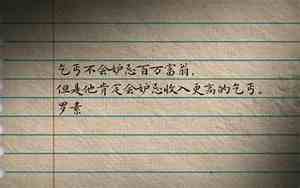 乞丐不会妒忌百万富翁,
但是他肯定会妒忌收入更高的乞丐。
罗素